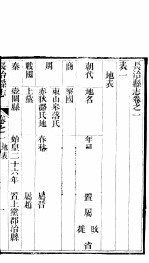 長治縣志卷之二
表一
地表
朝代 地名 年號 置屬 省
商 黎國
周 東山皋落氏
赤狄潞氏地 春秋 屬晉
戰國 上黨 屬趙
秦 壺關縣 始皇二十六年 置上黨郡治縣
長治縣志 卷之二 地表